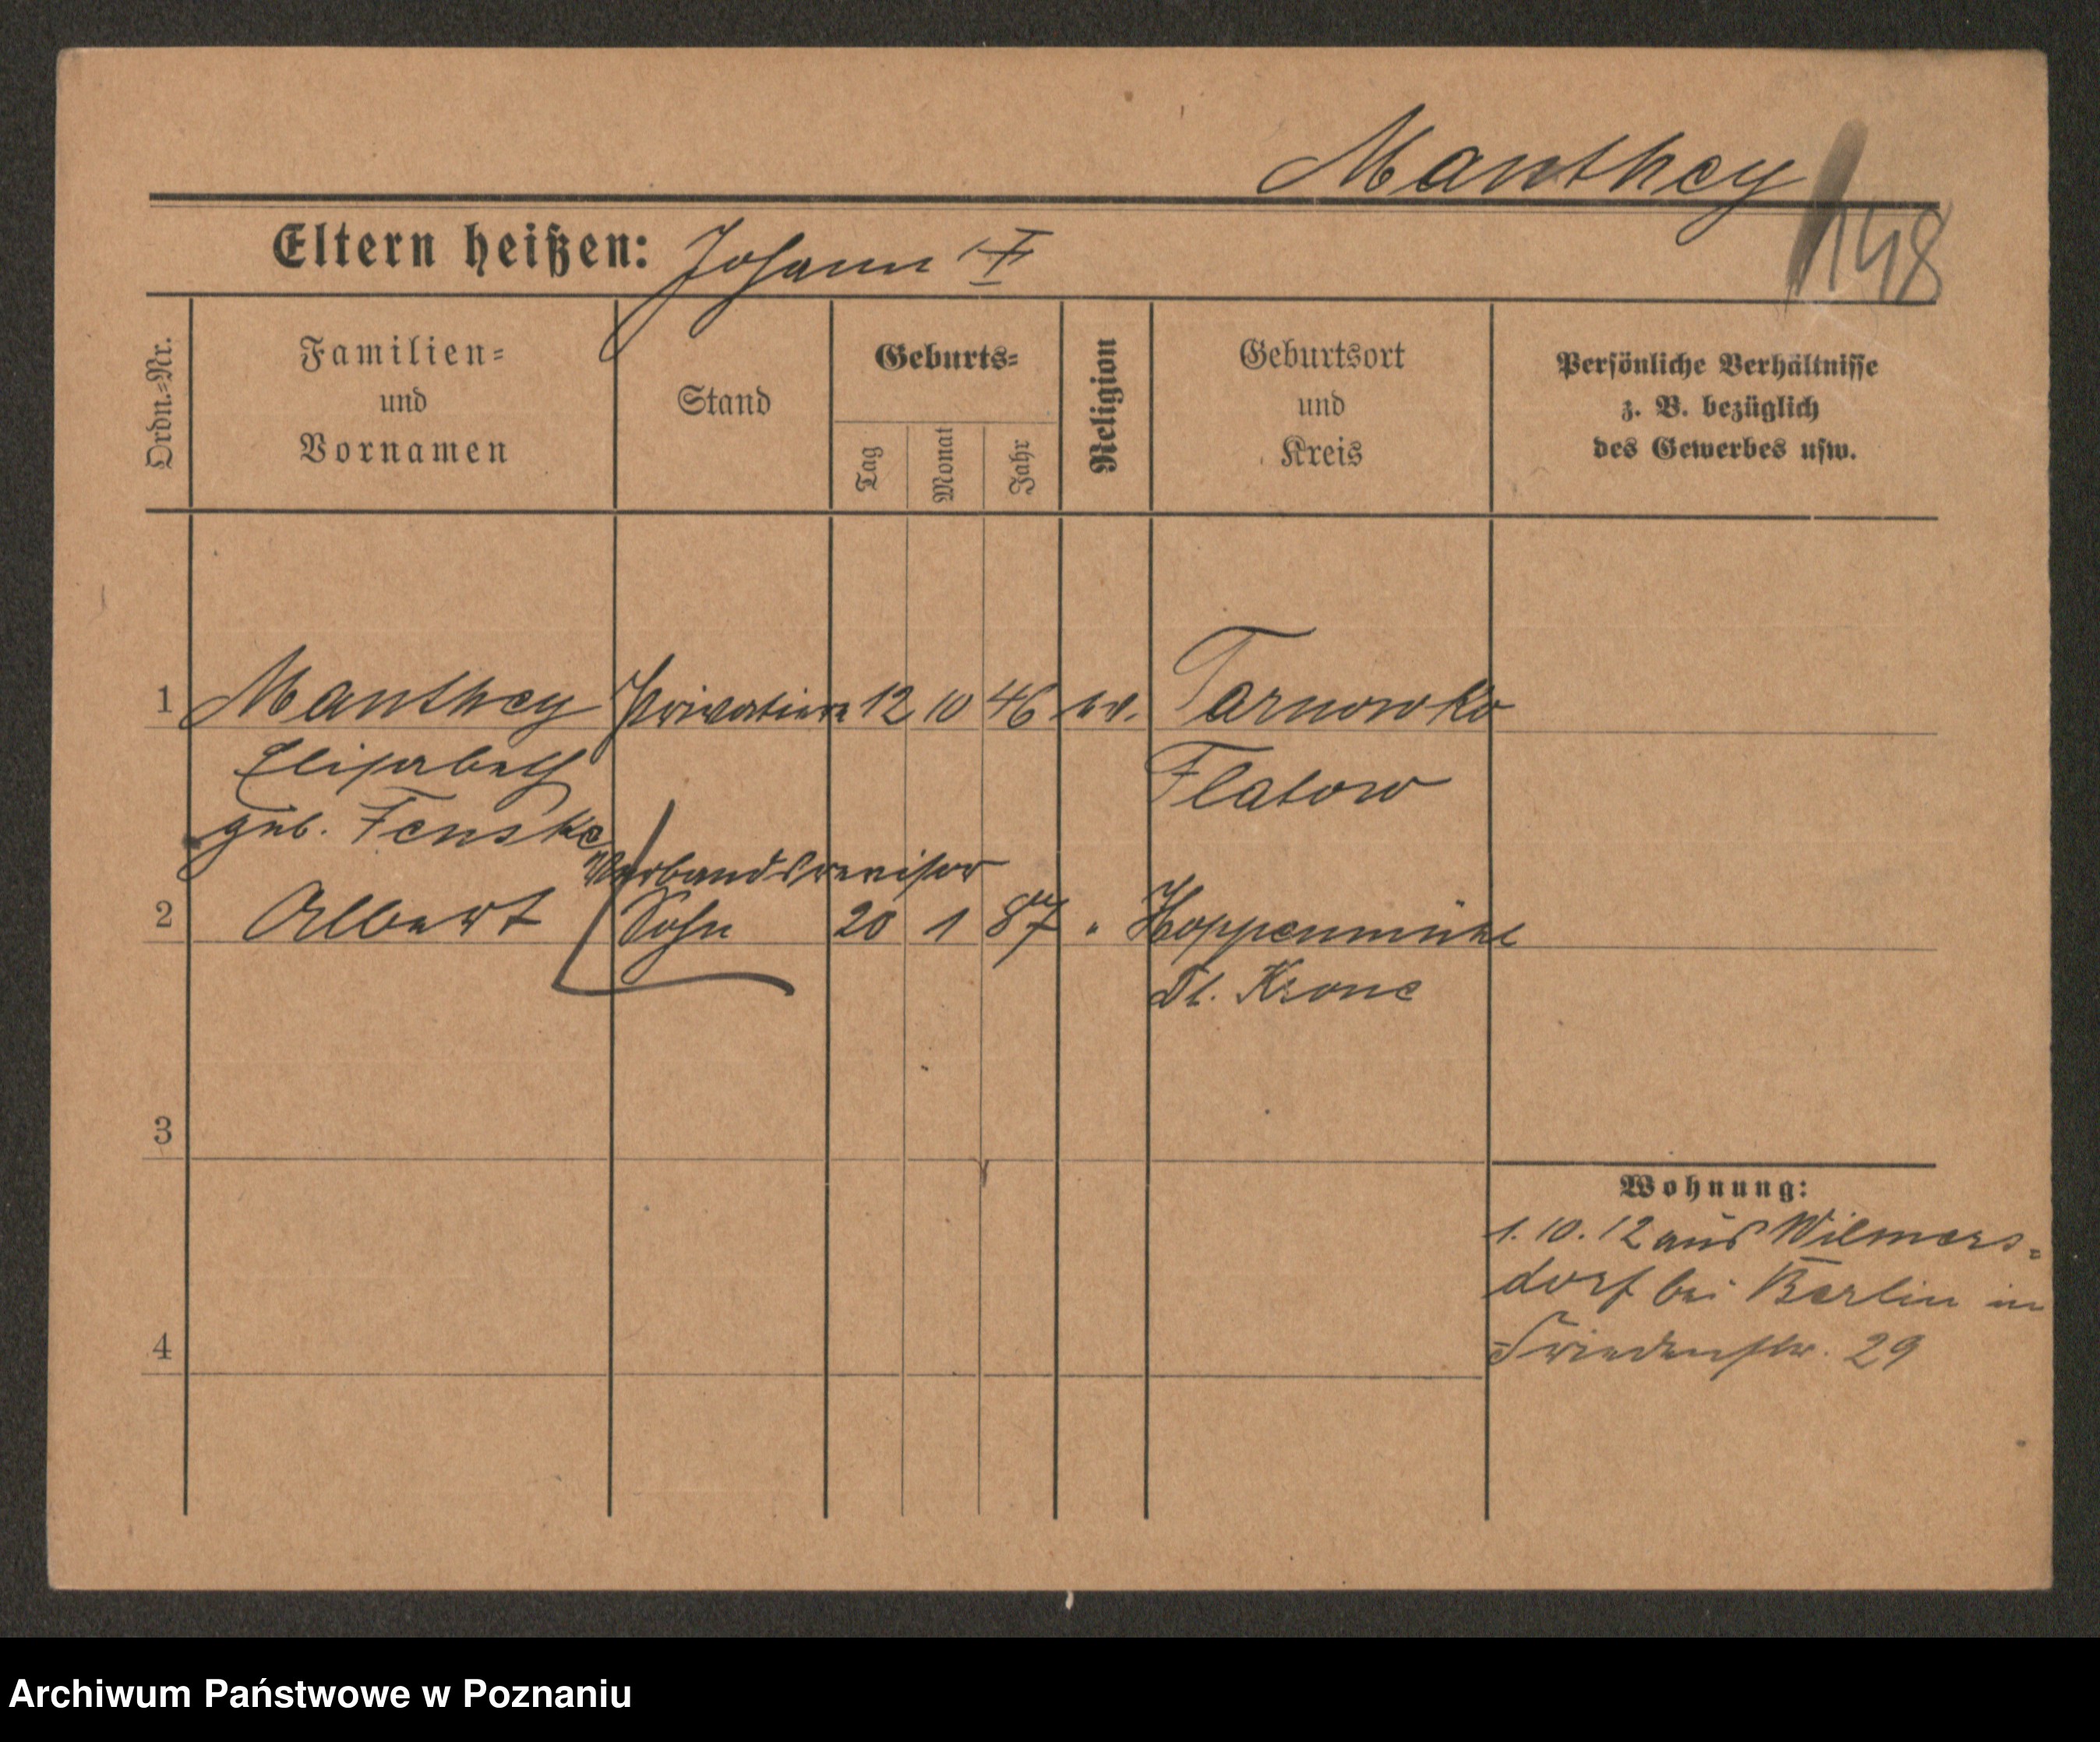 Manthey
148
Eltern heißen: Johann I
Ordn.-Nr.
Familien-
und
Vornamen
Stand
Geburts-
Tag
Monat
Jahr
Religion
Geburtsort
und
Kreis
Persönliche Verhältnisse
z. B. bezüglich
des Gewerbes usw.
1 Manthey Privatiere 12 10 46 ev. Tarnowko
Elisabeth Flatow
geb. Fenske
Verbandsrevisor
2 Albert Sohn 20 1 87 " Hoppenmühl
Dt. Krone
3
Wohnung:
1. 10. 12 aus Wilmers-
dorf bei Berlin in
Friedenstr. 29
4
Archiwum Państwowe w Poznaniu